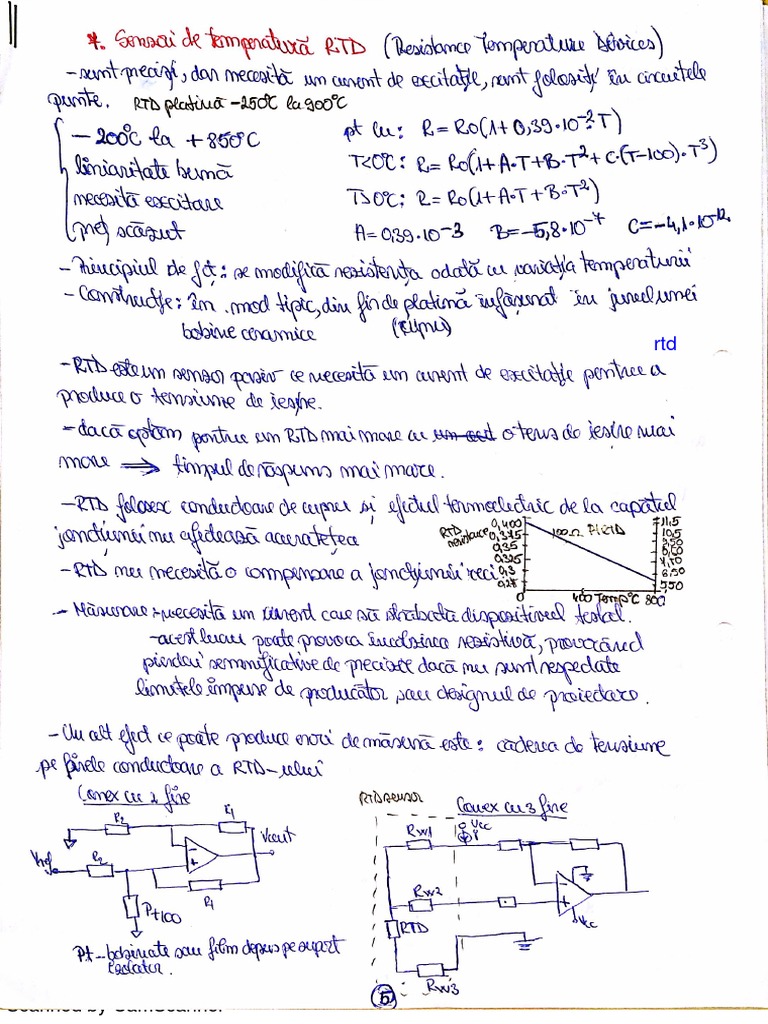 7. Senzori de temperatură RTD (Resistance Temperature Devices)
- sunt preciși, dar necesită un curent de excitație, sunt folosiți în circuitele
punte. RTD platină -250°C la 900°C
- 200°C la + 850°C
liniaritate bună
necesită excitare
preț scăzut
pt cu: R = R0(1 + 0,39·10⁻²·T)
T<0°C: R = R0(1 + A·T + B·T² + C·(T-100)·T³)
T>0°C: R = R0(1 + A·T + B·T²)
A = 0,39·10⁻³ B = -5,8·10⁻⁷ C = -4,1·10⁻¹²
- Principiul de fcț: se modifică rezistența odată cu variația temperaturii
- Construcție: în mod tipic, din fir de platină înfășurat în jurul unei
bobine ceramice (cupru)
rtd
- RTD este un senzor pasiv ce necesită un curent de excitație pentru a
produce o tensiune de ieșire.
- dacă optăm pentru un RTD mai mare cu o tens de ieșire mai
mare ⟹ timpul de răspuns mai mare.
- RTD folosesc conductoare de cupru și efectul termoelectric de la capătul
joncțiunii nu afectează acuratețea
- RTD nu necesită o compensare a joncțiunii reci
RTD resistance
0,400
0,375
0,35
0,325
0,3
100Ω Pt RTD
11,5
10,5
6,50
5,50
0 400 Temp°C 800
- Măsurare: necesită un curent care să străbată dispozitivul testat.
- acest lucru poate provoca încălzirea rezistivă, provocând
pierderi semnificative de precizie dacă nu sunt respectate
limitele impuse de producător, sau designul de proiectare.
- Un alt efect ce poate produce erori de măsură este: căderea de tensiune
pe firele conductoare a RTD-ului
Conex cu 2 fire
R2
R1
Vref
R2
Vout
R1
Pt100
Pt - bobinate sau film depus pe suport
izolator.
RTD sensor
Conex cu 3 fire
RW1
Vcc
RW2
RTD
Vcc
RW3
5
Scanned by CamScanner